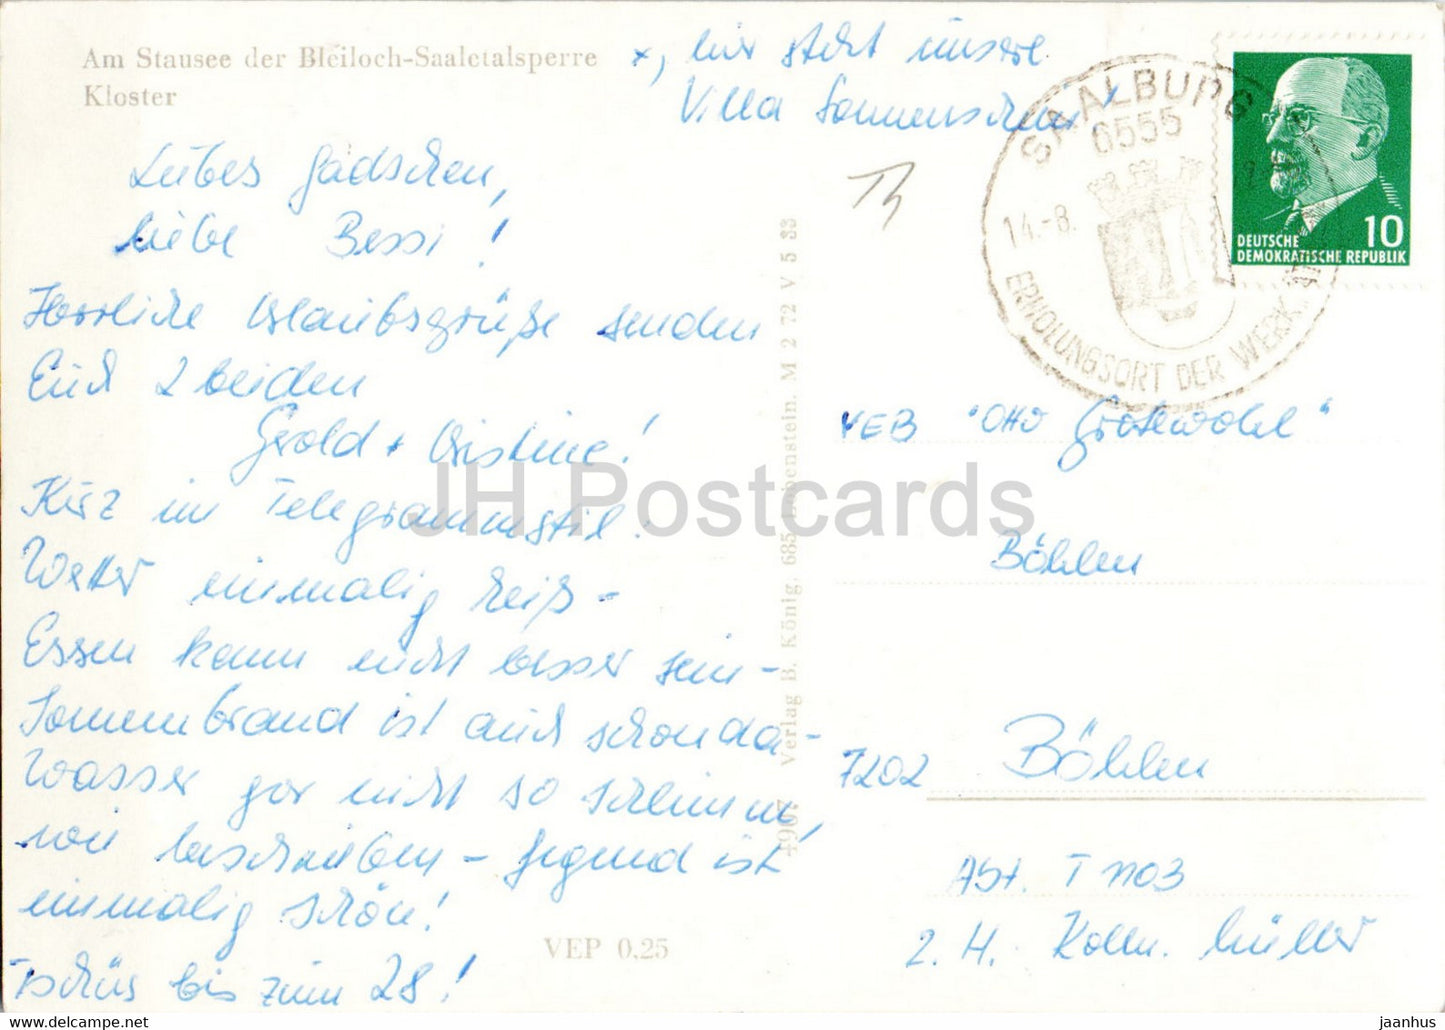 Am Stausee der Bleiloch-Saaletalsperre
Kloster
x, hier steht unsere
Villa Sonnenschein
Liebes Gädschen,
liebe Bessi!
Herrliche Urlaubsgrüße senden
Euch 2 beiden
Gerold + Christine!
Kurz im Telegrammstil:
Wetter einmalig heiß -
Essen kann nicht besser sein -
Sonnenbrand ist auch schon da -
Wasser gar nicht so schlimm,
wie beschrieben - Gegend ist
einmalig schön!
Tschüs bis zum 28!
VEP 0,25
4967 Verlag B. König, 685 Lobenstein. M 2 72 V 5 33
SAALBURG
6555
14.-8.
ERHOLUNGSORT DER WERK
DEUTSCHE
DEMOKRATISCHE REPUBLIK
10
VEB "Otto Grotewohl"
Böhlen
7202 Böhlen
Abt. T 1103
z. H. Kolln. Müller
JH Postcards
jaanhus.com
jaanhus